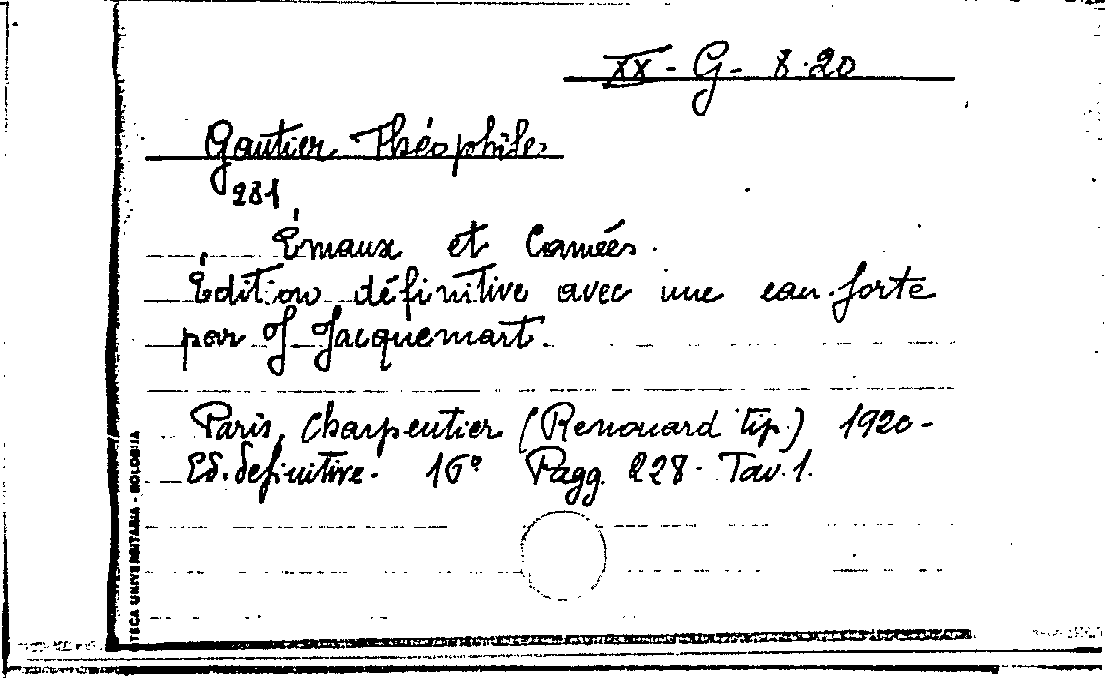 XX - G - 8.20
Gautier Théophile
281
Émaux et Camées.
Édition définitive avec une eau-forte
par J. Jacquemart.
Paris, Charpentier (Renouard tip.) 1920 -
Ed. definitive. 16° Pagg. 228. Tav. 1.
TECA UNIVERSITARIA - BOLOGNA